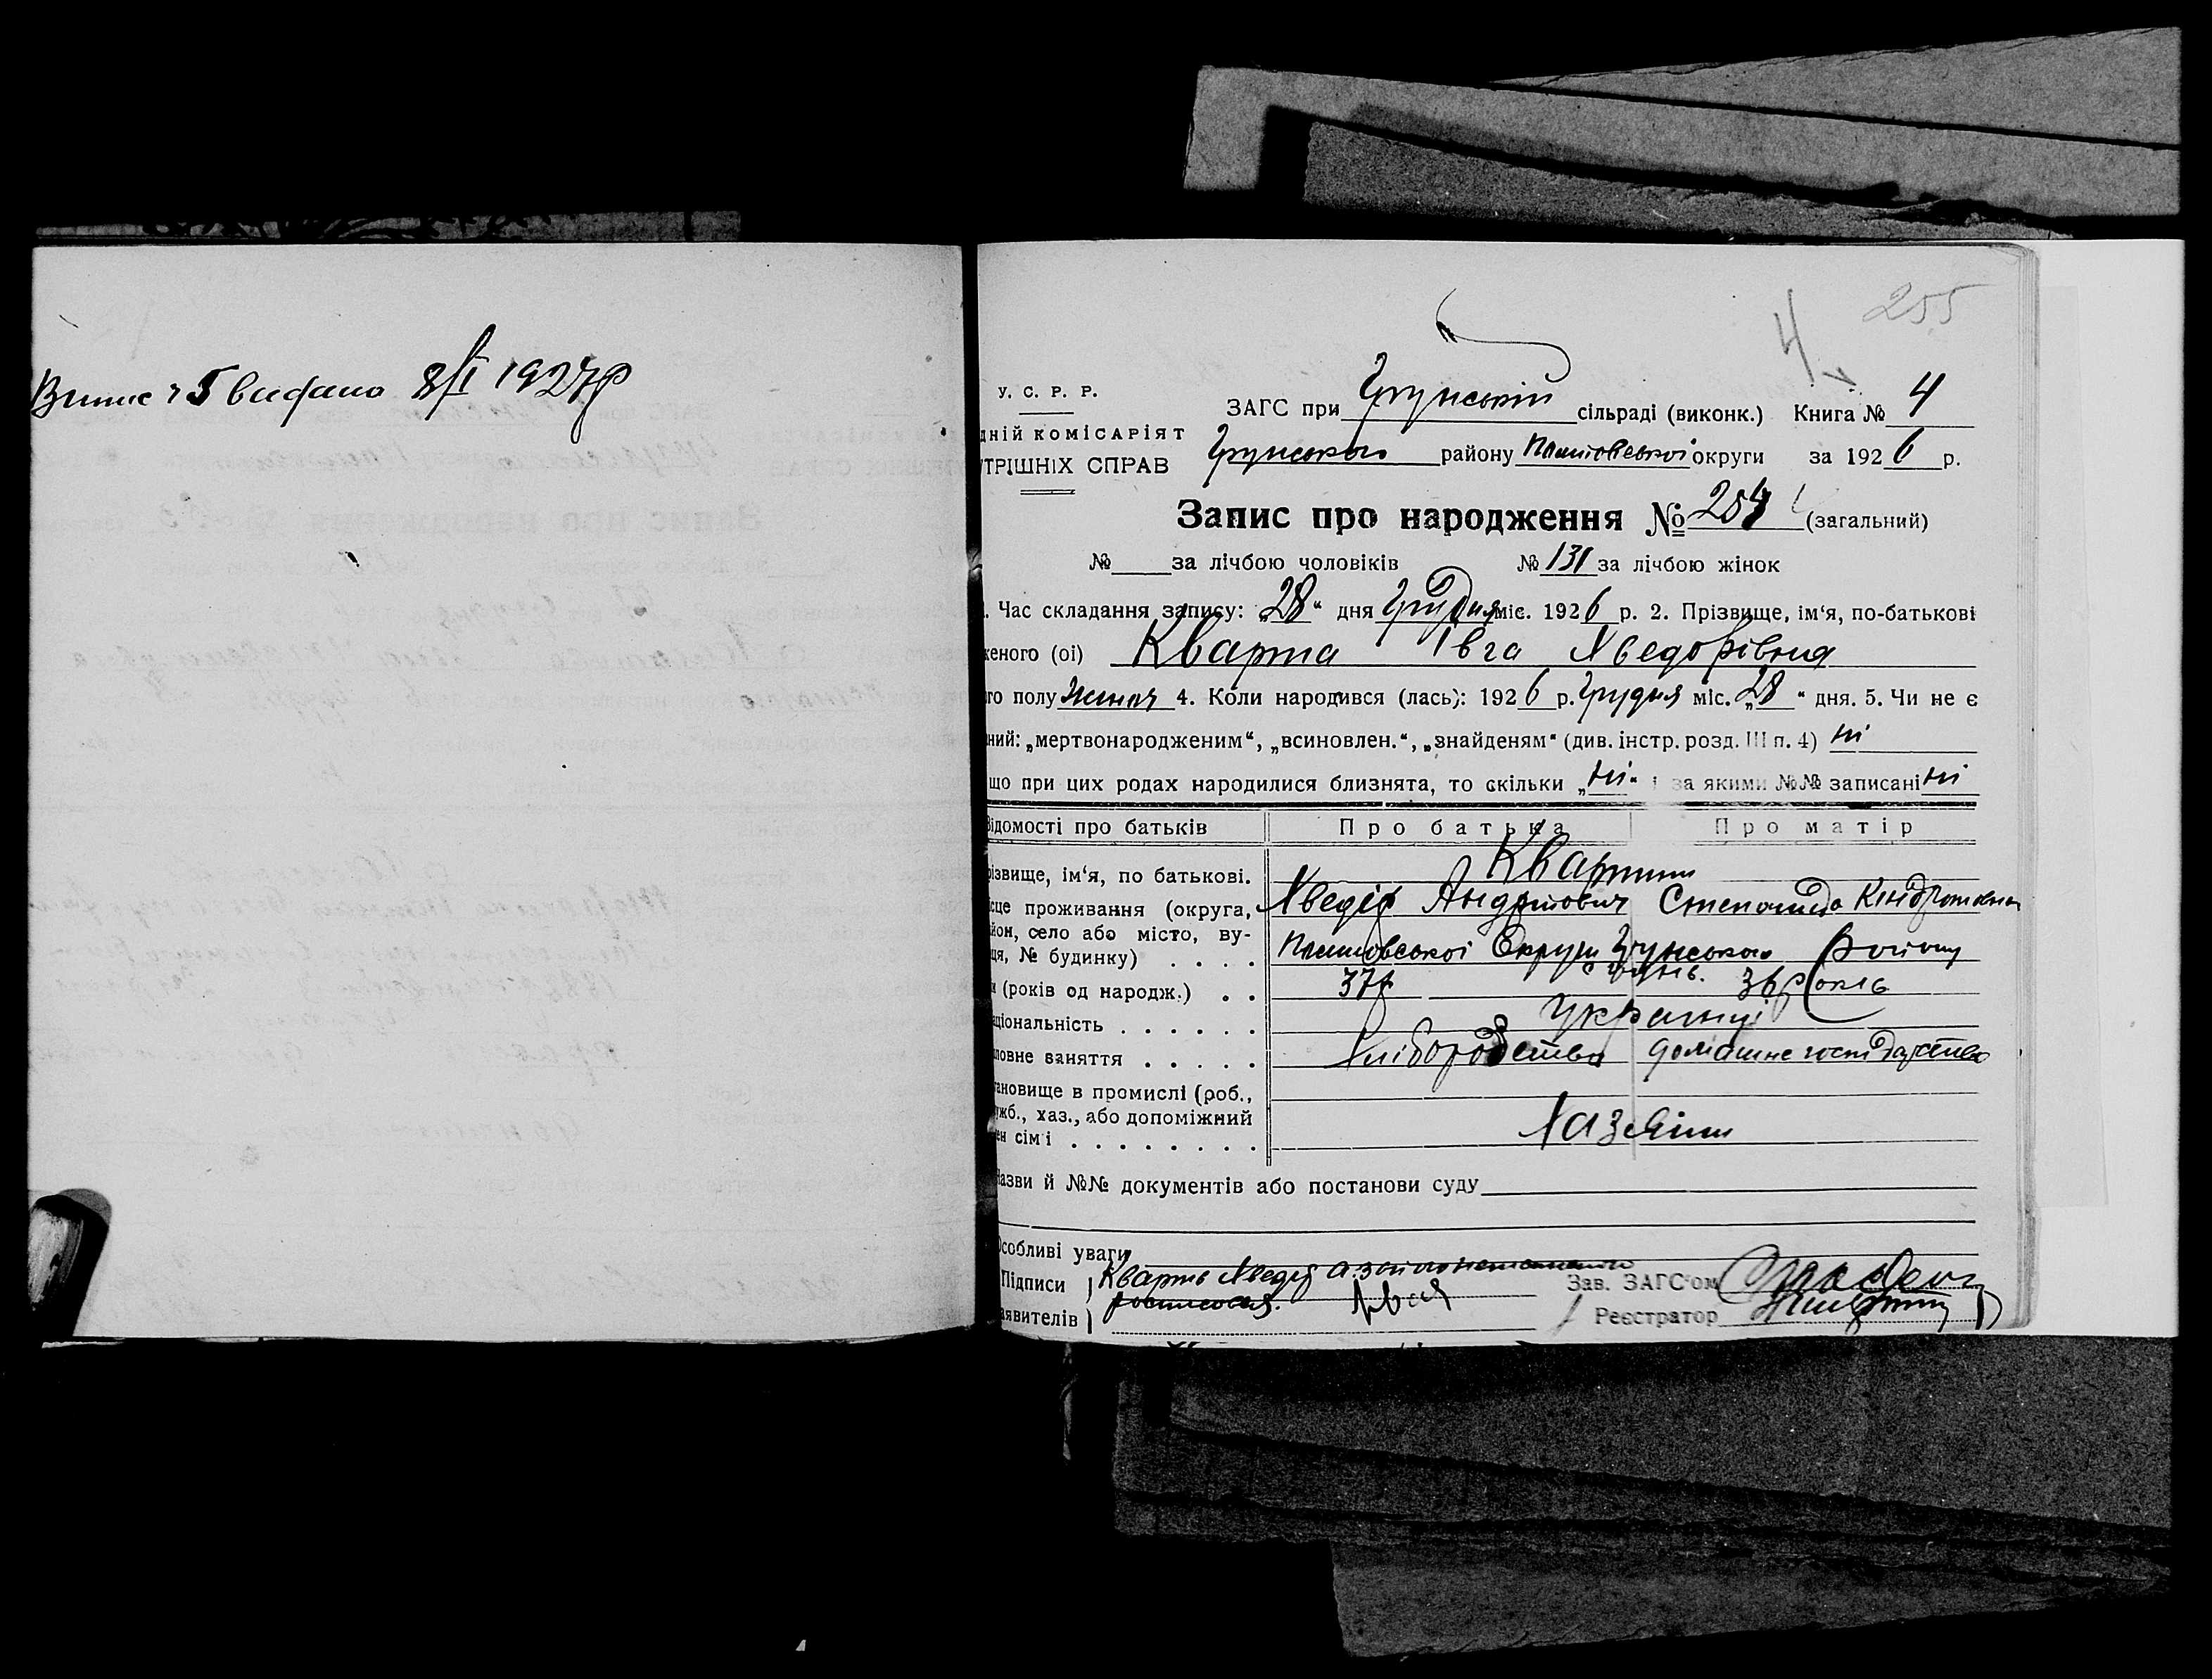 Випис ч 5 видано 8/I 1927р
255
4
У. С. Р. Р.
ЗАГС при Грунській сільраді (виконк.) Книга № 4
дній комісаріят
Грунського району Полтовської округи за 1926 р.
трішніх справ
Запис про народження № 254 (загальний)
№ за лічбою чоловіків № 131 за лічбою жінок
. Час складання запису: „28“ дня Грудня міс. 1926 р. 2. Прізвище, ім‘я, по-батькові
женого (ої) Кварта Івга Хведорівна
го полу жіноч 4. Коли народився (лась): 1926 р. Грудня міс. „28“ дня. 5. Чи не є
ний: „мертвонародженим“, „всиновлен.“, „знайденям“ (див. інстр. розд. III п. 4) ні
що при цих родах народилися близнята, то скільки „ні“ і за якими №№ записані ні
Відомості про батьків Про батька Про матір
Кварти
різвище, ім‘я, по батькові.
Хведір Андрієвич Степанида Кіндратовна
ісце проживання (округа,
йон, село або місто, ву-
ця, № будинку) . . . . Полтовської Округи Грунського Району
с Грунь.
и (років од народж.) . . 37р 36 років
аціональність . . . . . . Українці
ловне заняття . . . . . Хліборобство домашнє господарство
тановище в промислі (роб.,
ужб., хаз., або допоміжний
ен сім‘ї . . . . . . . . Хазяіни
Назви й №№ документів або постанови суду
Особливі уваги
Підписи Кварта Хведір а за його неписьменого Зав. ЗАГС‘ом
аявителів росписався. Реєстратор